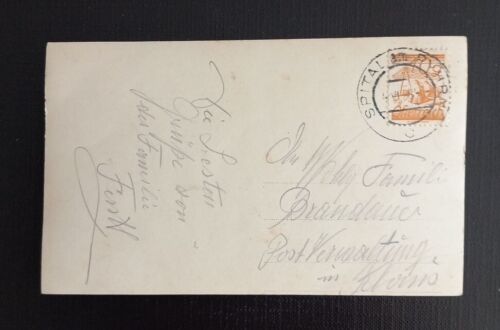 Die besten
Grüße von
der Familie
Fertl
SPITAL AM PYHRN
An Wohlg. Familie
Brandauer
Postverwaltung
in